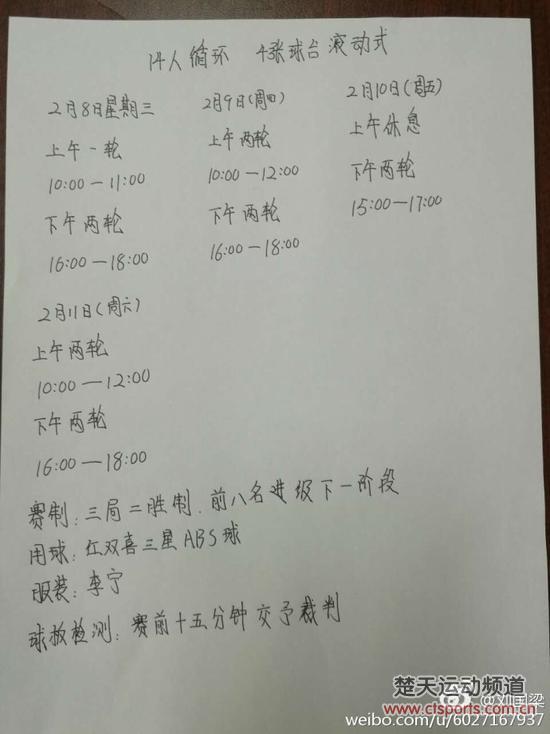 14人循环 4张球台滚动式
2月8日星期三
上午一轮
10:00—11:00
下午两轮
16:00—18:00
2月9日(周四)
上午两轮
10:00—12:00
下午两轮
16:00—18:00
2月10日(周五)
上午休息
下午两轮
15:00—17:00
2月11日(周六)
上午两轮
10:00—12:00
下午两轮
16:00—18:00
赛制:三局二胜制.前八名进级下一阶段
用球:红双喜三星ABS球
服装:李宁
球板检测:赛前十五分钟交予裁判
楚天运动频道
@刘国梁
www.ctsports.com.cn
weibo.com/u/6027167937